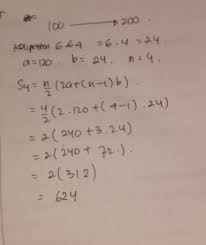 100 → 200
Kelipatan 6 & 4 = 6.4 = 24
a = 120 b = 24. n = 4.
S4 = n/2 (2a + (n-1) b)
= 4/2 (2.120 + (4-1) . 24)
= 2 (240 + 3.24)
= 2 (240 + 72.)
= 2 (312)
= 624